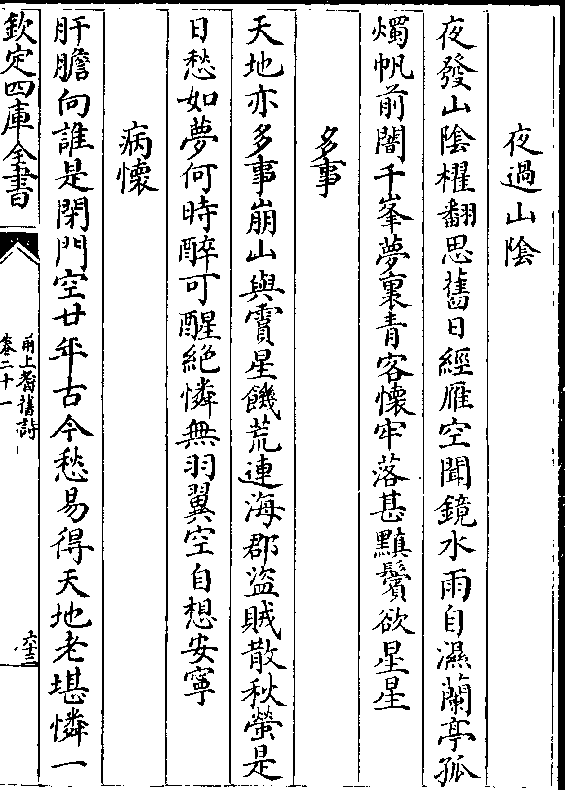 夜過山陰
夜發山陰櫂翻思舊日經雁空聞鏡水雨自濕蘭亭孤
燭帆前闇千峯夢裏青客懐牢落甚黰鬢欲星星
多事
天地亦多事崩山與霣星饑荒連海郡盜賊散秋螢是
日愁如夢何時醉可醒絶憐無羽翼空自想安寧
病懐
肝膽向誰是閉門空廿年古今愁易得天地老堪憐一
欽定四庫全書
甬上耆舊詩
卷二十一
六十三